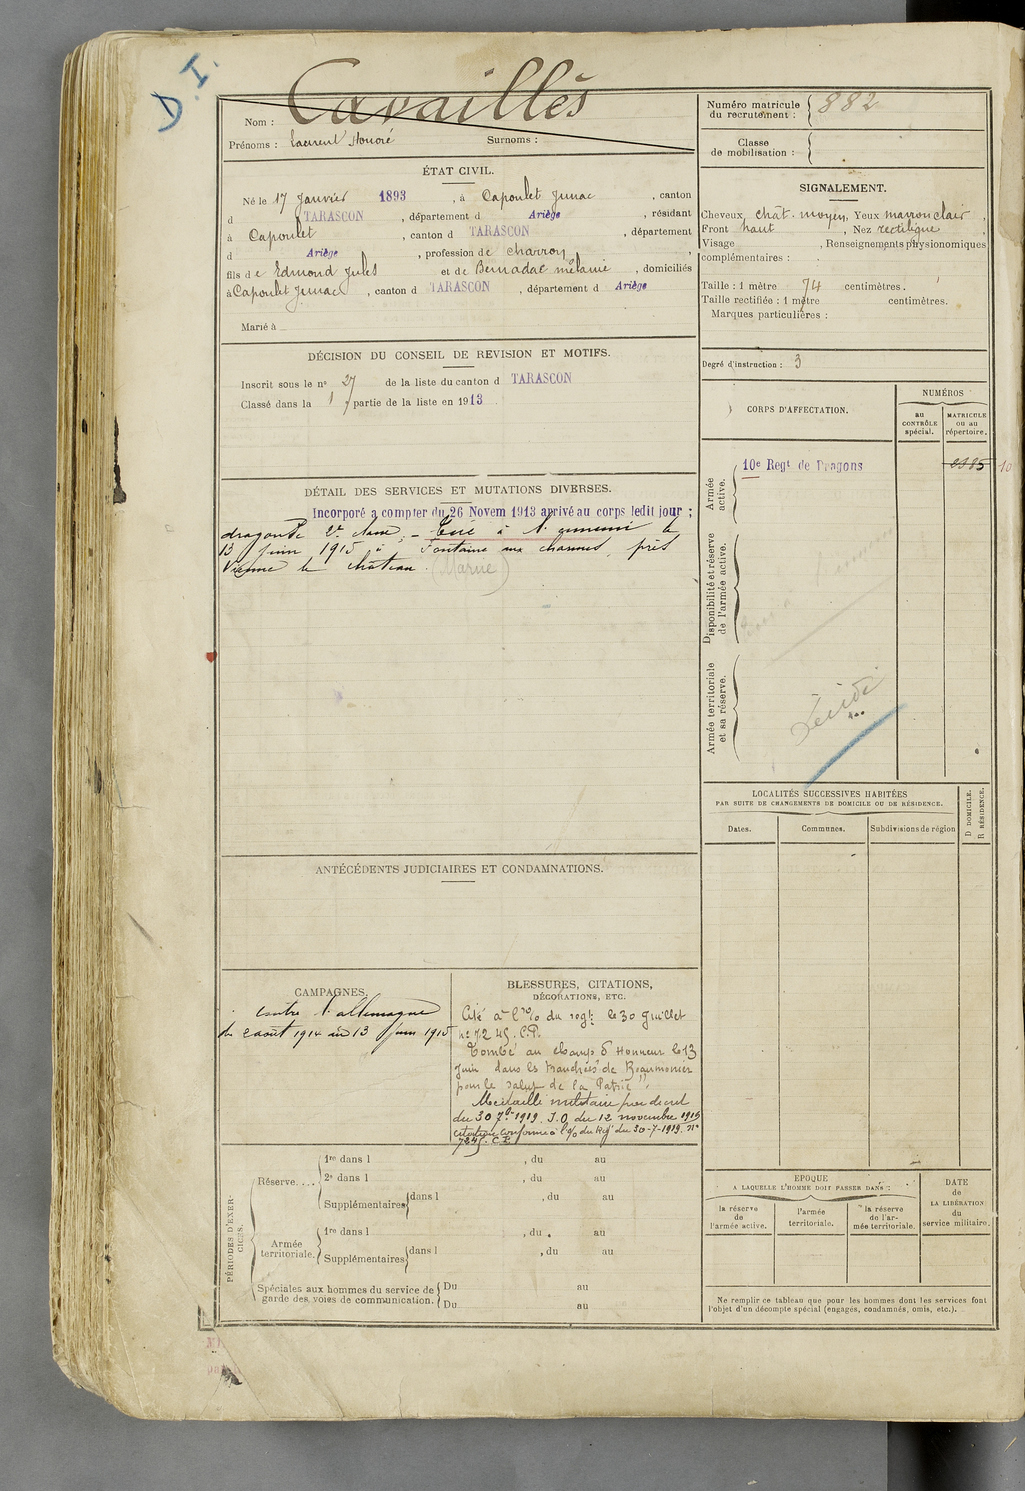 D.I.
Nom : Cavaillès
Prénoms : Laurent Honoré Surnoms :
Numéro matricule
du recrutement : 882
Classe
de mobilisation :
ÉTAT CIVIL.
Né le 17 Janvier 1893, à Capoulet Junac, canton
d TARASCON, département d Ariège, résidant
à Capoulet, canton d TARASCON, département
d Ariège, profession de charron,
fils de Edmond Jules et de Bernadac mélanie, domiciliés
à Capoulet Junac, canton d TARASCON, département d Ariège
Marié à
SIGNALEMENT.
Cheveux chât. moyen, Yeux marron clair,
Front haut, Nez rectiligne,
Visage , Renseignements physionomiques
complémentaires :
Taille : 1 mètre 74 centimètres.
Taille rectifiée : 1 mètre centimètres.
Marques particulières :
Degré d'instruction : 3
DÉCISION DU CONSEIL DE REVISION ET MOTIFS.
Inscrit sous le nº 27 de la liste du canton d TARASCON
Classé dans la 1 partie de la liste en 1913
CORPS D'AFFECTATION.
NUMÉROS
au
CONTRÔLE
spécial.
MATRICULE
ou au
répertoire.
Armée
active.
10e Regt de Dragons
Disponibilité et réserve
de l'armée active.
Armée territoriale
et sa réserve.
Décédé
DÉTAIL DES SERVICES ET MUTATIONS DIVERSES.
Incorporé a compter du 26 Novem 1913 arrivé au corps ledit jour ;
dragon de 2e classe, - Tué à l'ennemi le
13 Juin 1915 à Fontaine aux charmes, près
Vienne le château. (Marne)
LOCALITÉS SUCCESSIVES HABITÉES
PAR SUITE DE CHANGEMENTS DE DOMICILE OU DE RÉSIDENCE.
Dates.
Communes.
Subdivisions de région
D DOMICILE.
R RÉSIDENCE.
ANTÉCÉDENTS JUDICIAIRES ET CONDAMNATIONS.
CAMPAGNES.
contre l'allemagne
du 2 août 1914 au 13 Juin 1915
BLESSURES, CITATIONS,
DÉCORATIONS, ETC.
Cité à l'o/o du regt le 30 Juillet
nº 7245. C.P.
Tombé au champ d'Honneur le 13
Juin dans les tranchées de Beaumanoir
pour le salut de la Patrie".
Médaille militaire par décret
du 30 7bre 1919. J.O. du 12 novembre 1919
citation conforme à l'o/o du Regt du 30-7-1919. nº
7245. C.P.
PÉRIODES D'EXER-
CICES.
Réserve....
1re dans l , du au
2e dans l , du au
Supplémentaires dans l , du au
Armée
territoriale.
1re dans l , du au
Supplémentaires dans l , du au
Spéciales aux hommes du service de
garde des voies de communication.
Du au
Du au
EPOQUE
A LAQUELLE L'HOMME DOIT PASSER DANS :
la réserve
de
l'armée active.
l'armée
territoriale.
la réserve
de l'ar-
mée territoriale.
DATE
de
LA LIBÉRATION
du
service militaire.
Ne remplir ce tableau que pour les hommes dont les services font
l'objet d'un décompte spécial (engagés, condamnés, omis, etc.).